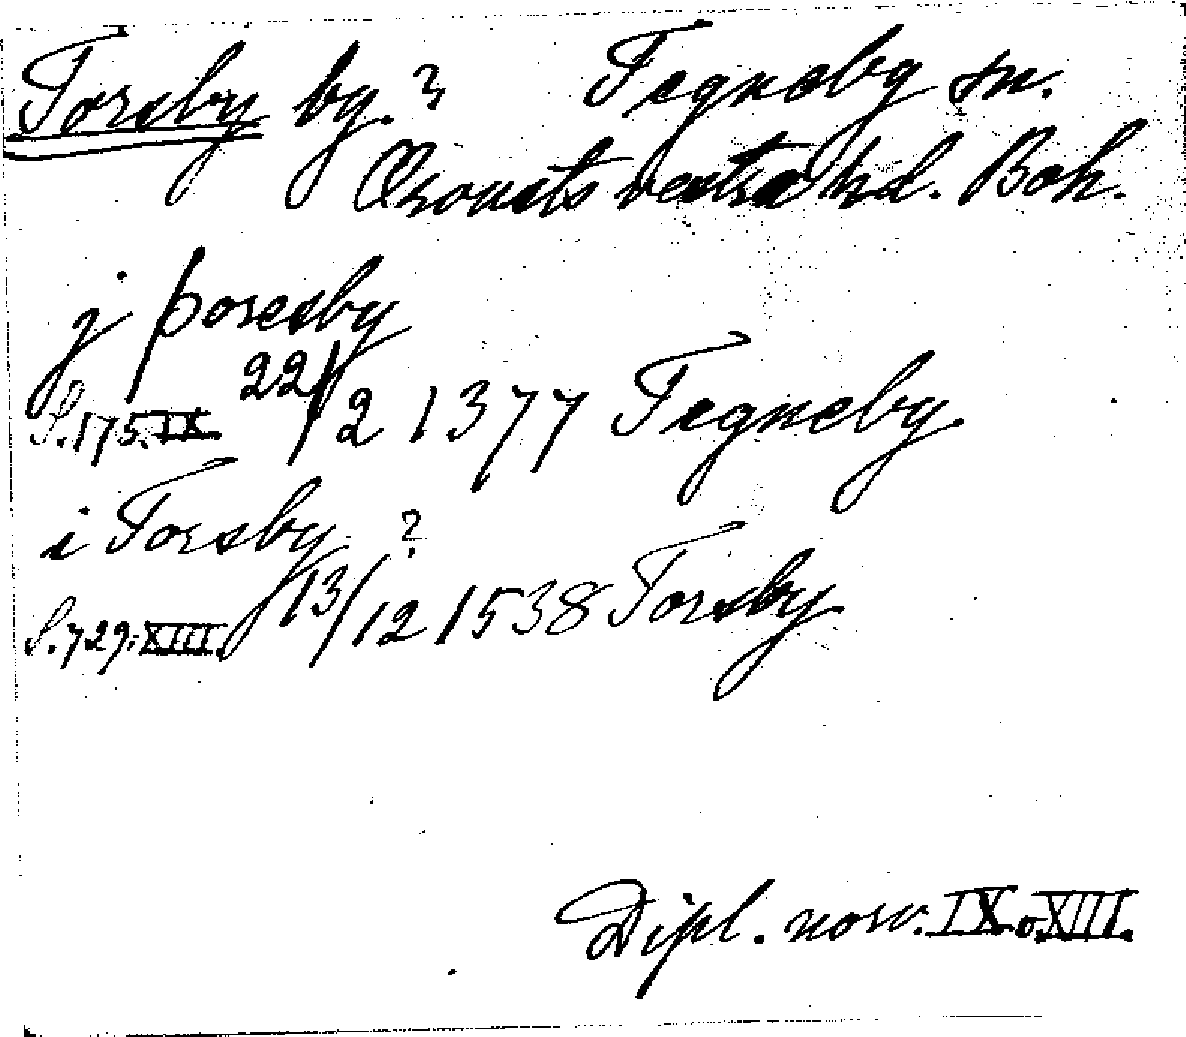 Torsby by.? Tegneby sn.
Orousts vestra hd. Boh.
j þoresby
S. 175. IX. 22/2 1377 Tegneby.
i Torsby ?
S. 729. XIII. 13/12 1538 Torsby
Dipl. norv. IX o. XIII.